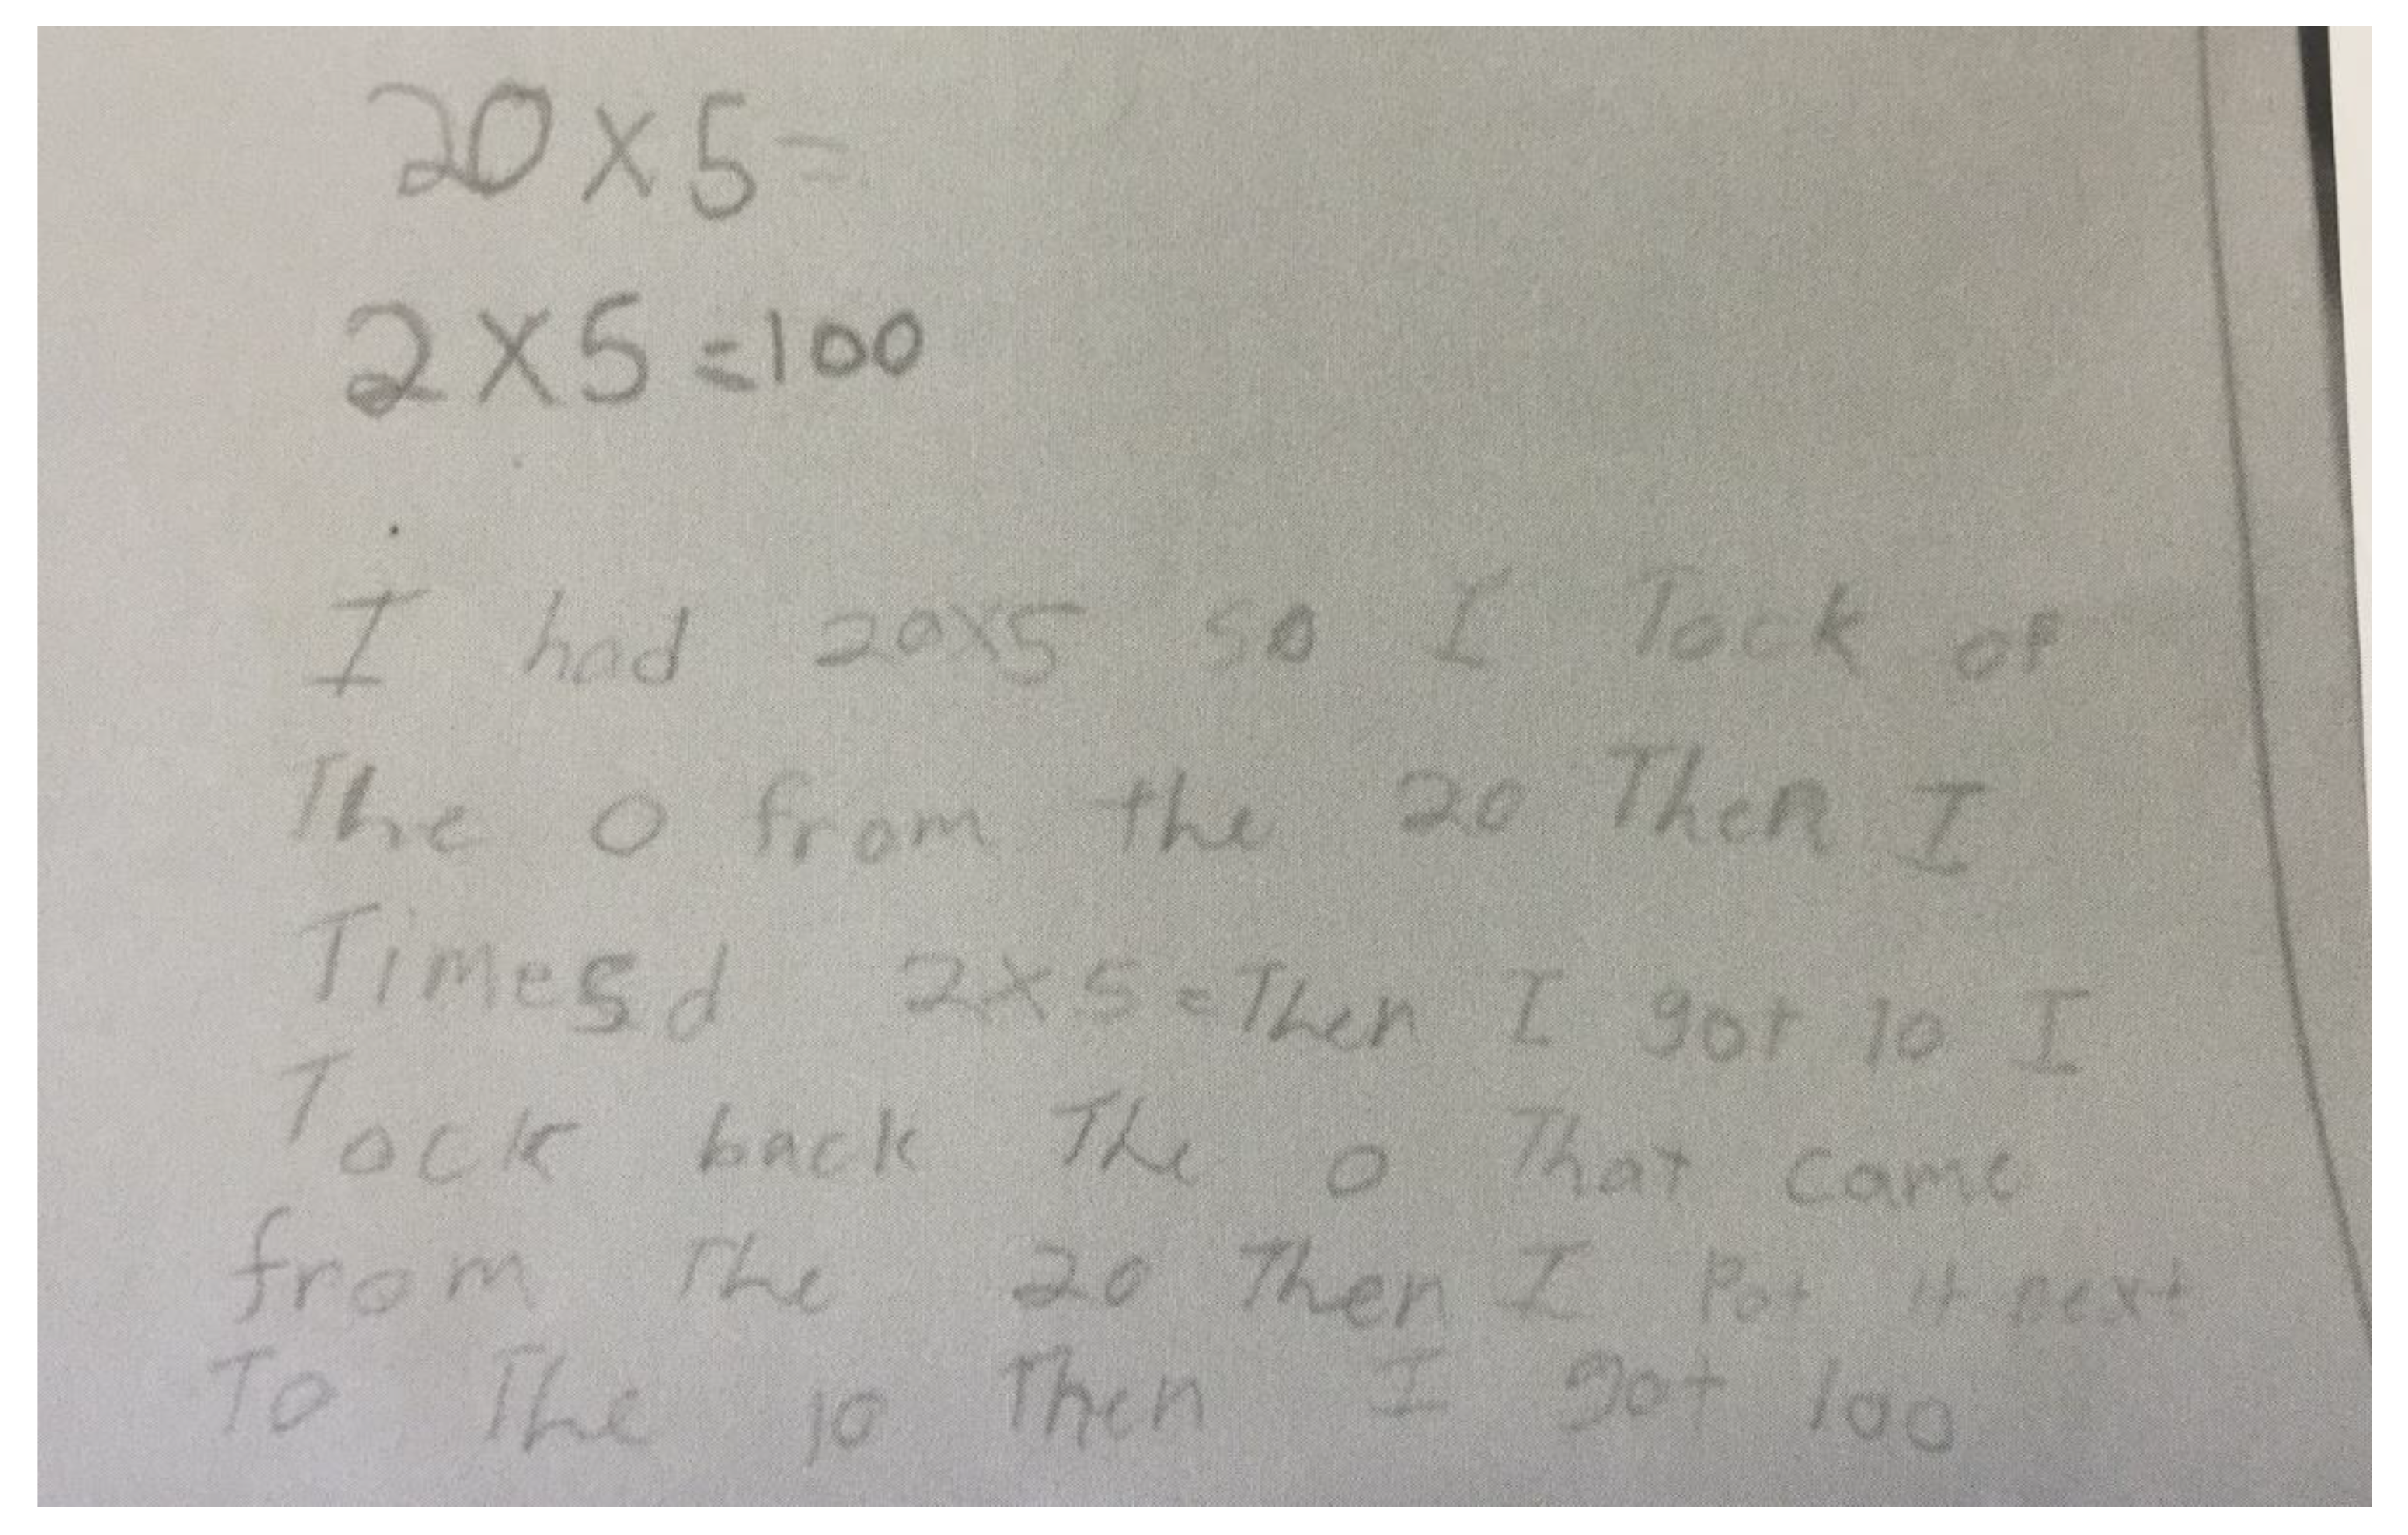 20 x 5 =
2 x 5 = 100
I had 20x5 so I Tock of
The 0 from the 20 Then I
Timesd 2x5= Then I got 10 I
Tock back The 0 That came
from The 20 Then I Pot it next
To The 10 Then I got 100